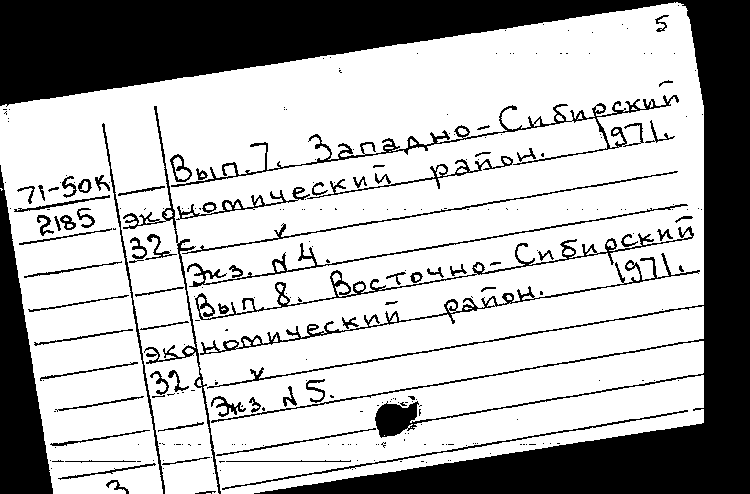 5
Вып. 7. Западно-Сибирский
71-50к
2185
экономический район. 1971.
32 с. v
Экз. N 4.
Вып. 8. Восточно-Сибирский
экономический район. 1971.
32 с. v
Экз. N 5.
3